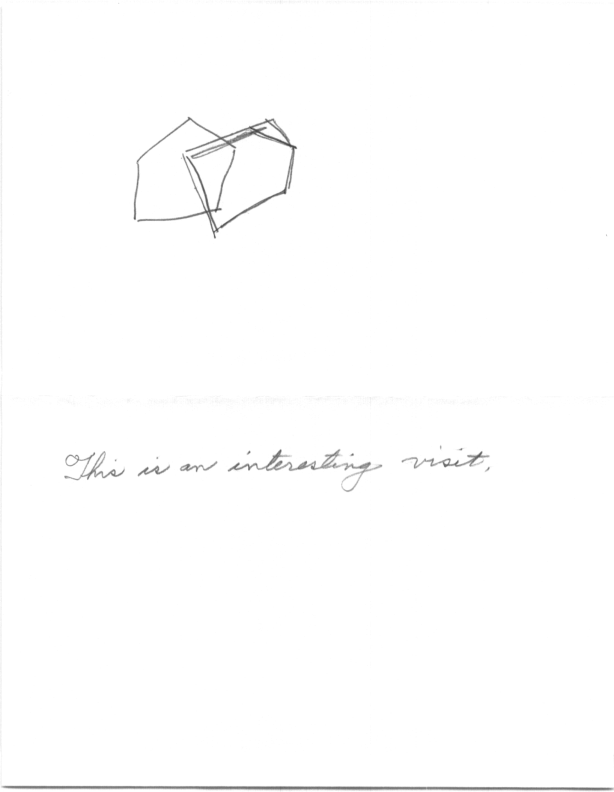 This is an interesting visit.